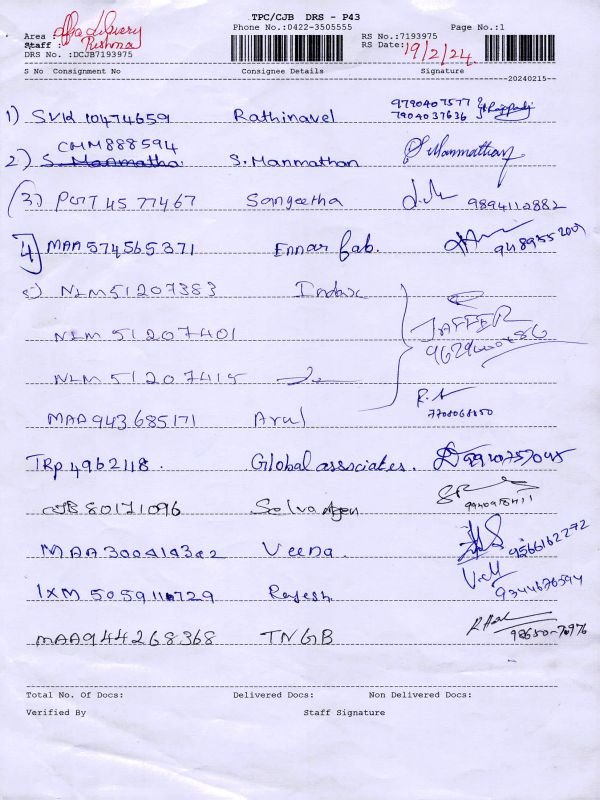 TPC/CJB DRS - P43
Phone No.:0422-3505555
Page No.:1
Area : Offa delivery
Staff : Reshma
DRS No. :DCJB7193975
RS No.:7193975
RS Date: 19/2/24.
S No Consignment No Consignee Details Signature
20240215
1) SVK 10474659 Rathinavel 9790407577
7904037636
CMM888594
2) S. Manmatha. S. Manmathan S Manmathan
3) PCTT 45 77467 Sangeetha 9894112882
4) MAA 574565371 Ennar fab.
5) NLM 51207383 Indax
NLM 51207401 JAFFER
NLM 51207415
MAA 943685171 Arul R.S
TRP 4962118. Global assciates.
CJB 80171096 Selva
MAA 3004143a2 Veena. 9566162272
IXM 50591110729 Rajesh 9344676594
MAA944268368 TNGB 98650-70976
Total No. Of Docs: Delivered Docs: Non Delivered Docs:
Verified By Staff Signature